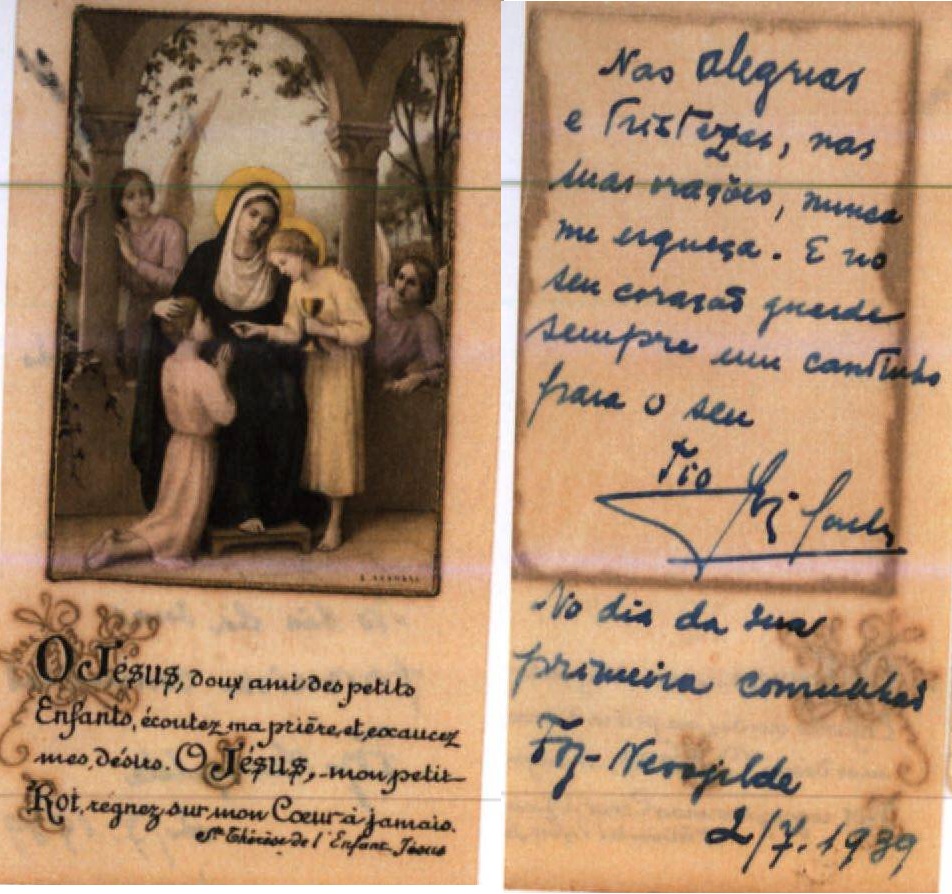 O Jésus, doux ami des petits
Enfants, écoutez ma prière et exaucez
mes désirs. O Jésus, mon petit
Roi, régnez sur mon Cœur à jamais.
Ste Thérèse de l'Enfant Jésus
Nas alegrias
e Tristezas, nas
suas orações, nunca
me esqueça. E no
seu coração guarde
sempre um cantinho
para o seu
Tio
No dia da sua
primeira comunhão
Foz-Nevogilde
2/7.1939